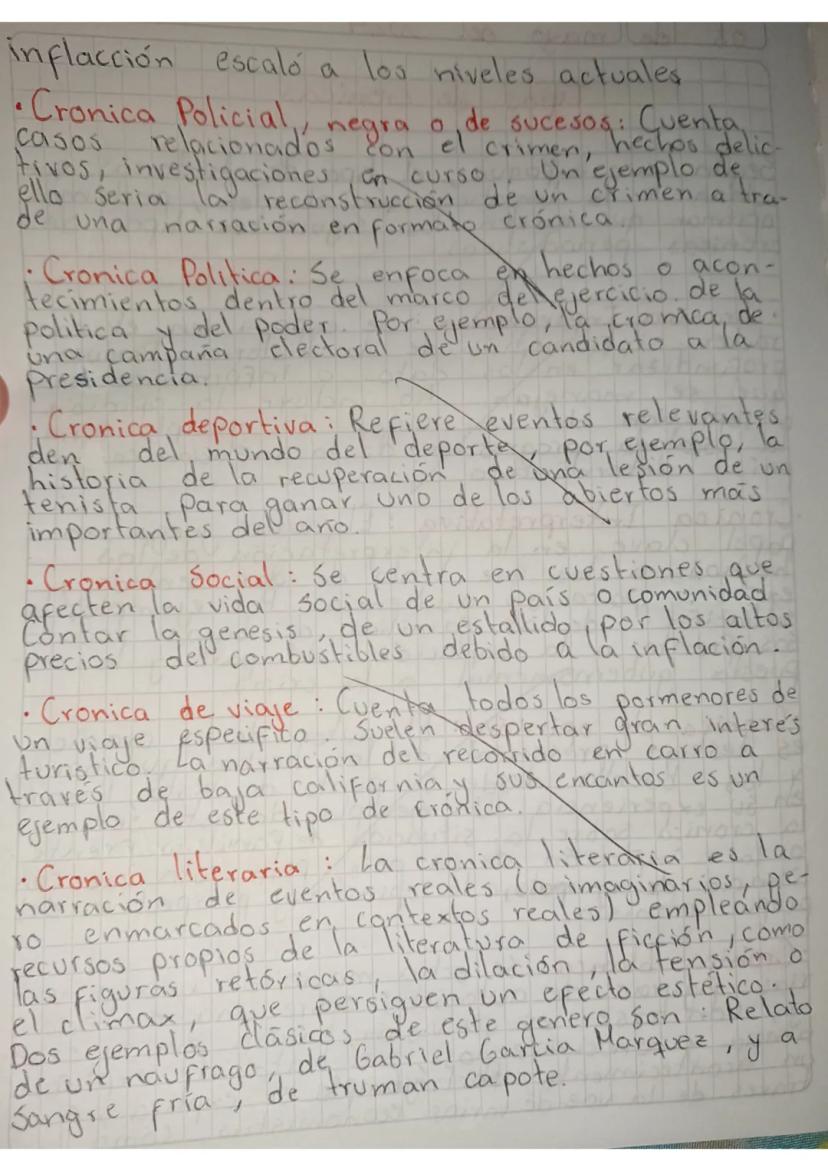 inflacción escaló a los niveles actuales
• Cronica Policial, negra o de sucesos: Cuenta
casos relacionados con el crimen, hechos delic-
tivos, investigaciones en curso. Un ejemplo de
ello seria la reconstrucción de un crimen a tra-
de una narración en formato crónica.
• Cronica Politica: Se enfoca en hechos o acon-
tecimientos dentro del marco del ejercicio de la
politica y del poder. Por ejemplo, la cronica, de
una campaña electoral de un candidato a la
presidencia.
• Cronica deportiva: Refiere eventos relevantes
den del mundo del deporte, por ejemplo, la
historia de la recuperación de una lesión de un
tenista para ganar uno de los abiertos mas
importantes del año.
• Cronica Social: Se centra en cuestiones que
afecten la vida social de un país o comunidad
Contar la genesis, de un estallido por los altos
precios del combustibles debido a la inflación.
• Cronica de viaje: Cuenta todos los pormenores de
un viaje especifito. Suelen despertar gran interés
turistico. La narración del recorrido en carro a
traves de baja california y sus encantos es un
ejemplo de este tipo de crónica.
• Cronica literaria: La cronica literaria es la
narración de eventos reales (o imaginarios, pe-
ro enmarcados en contextos reales) empleando
recursos propios de la literatura de ficción, como
las figuras retóricas, la dilación, la tensión o
el climax, que persiguen un efecto estético.
Dos ejemplos clásicos de este genero son: Relato
de un naufrago, de Gabriel Garcia Marquez, y a
sangre fría, de truman capote.